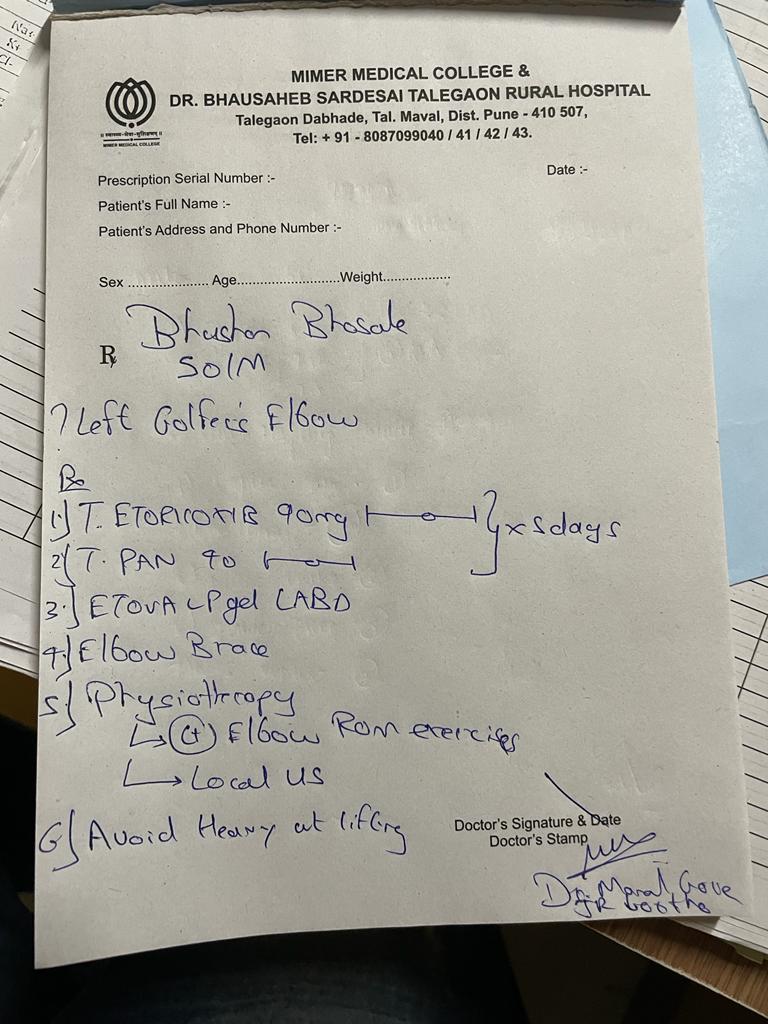 MIMER MEDICAL COLLEGE &
DR. BHAUSAHEB SARDESAI TALEGAON RURAL HOSPITAL
Talegaon Dabhade, Tal. Maval, Dist. Pune - 410 507,
Tel: + 91 - 8087099040 / 41 / 42 / 43.
MIMER MEDICAL COLLEGE
Prescription Serial Number :-
Date :-
Patient's Full Name :-
Patient's Address and Phone Number :-
Sex ..................... Age...........................Weight..................
℞ Bhushan Bhosale
50/M
? Left Golfer's Elbow
Rx
1) T. ETORICOXIB 90mg } x 5days
2) T. PAN 40
3) ETOVA gel LABD
4) Elbow Brace
5) Physiotherapy
↳ (+) Elbow ROM exercises
↳ Local US
6) Avoid Heavy wt lifting
Doctor's Signature & Date
Doctor's Stamp
Dr.
JR ortho